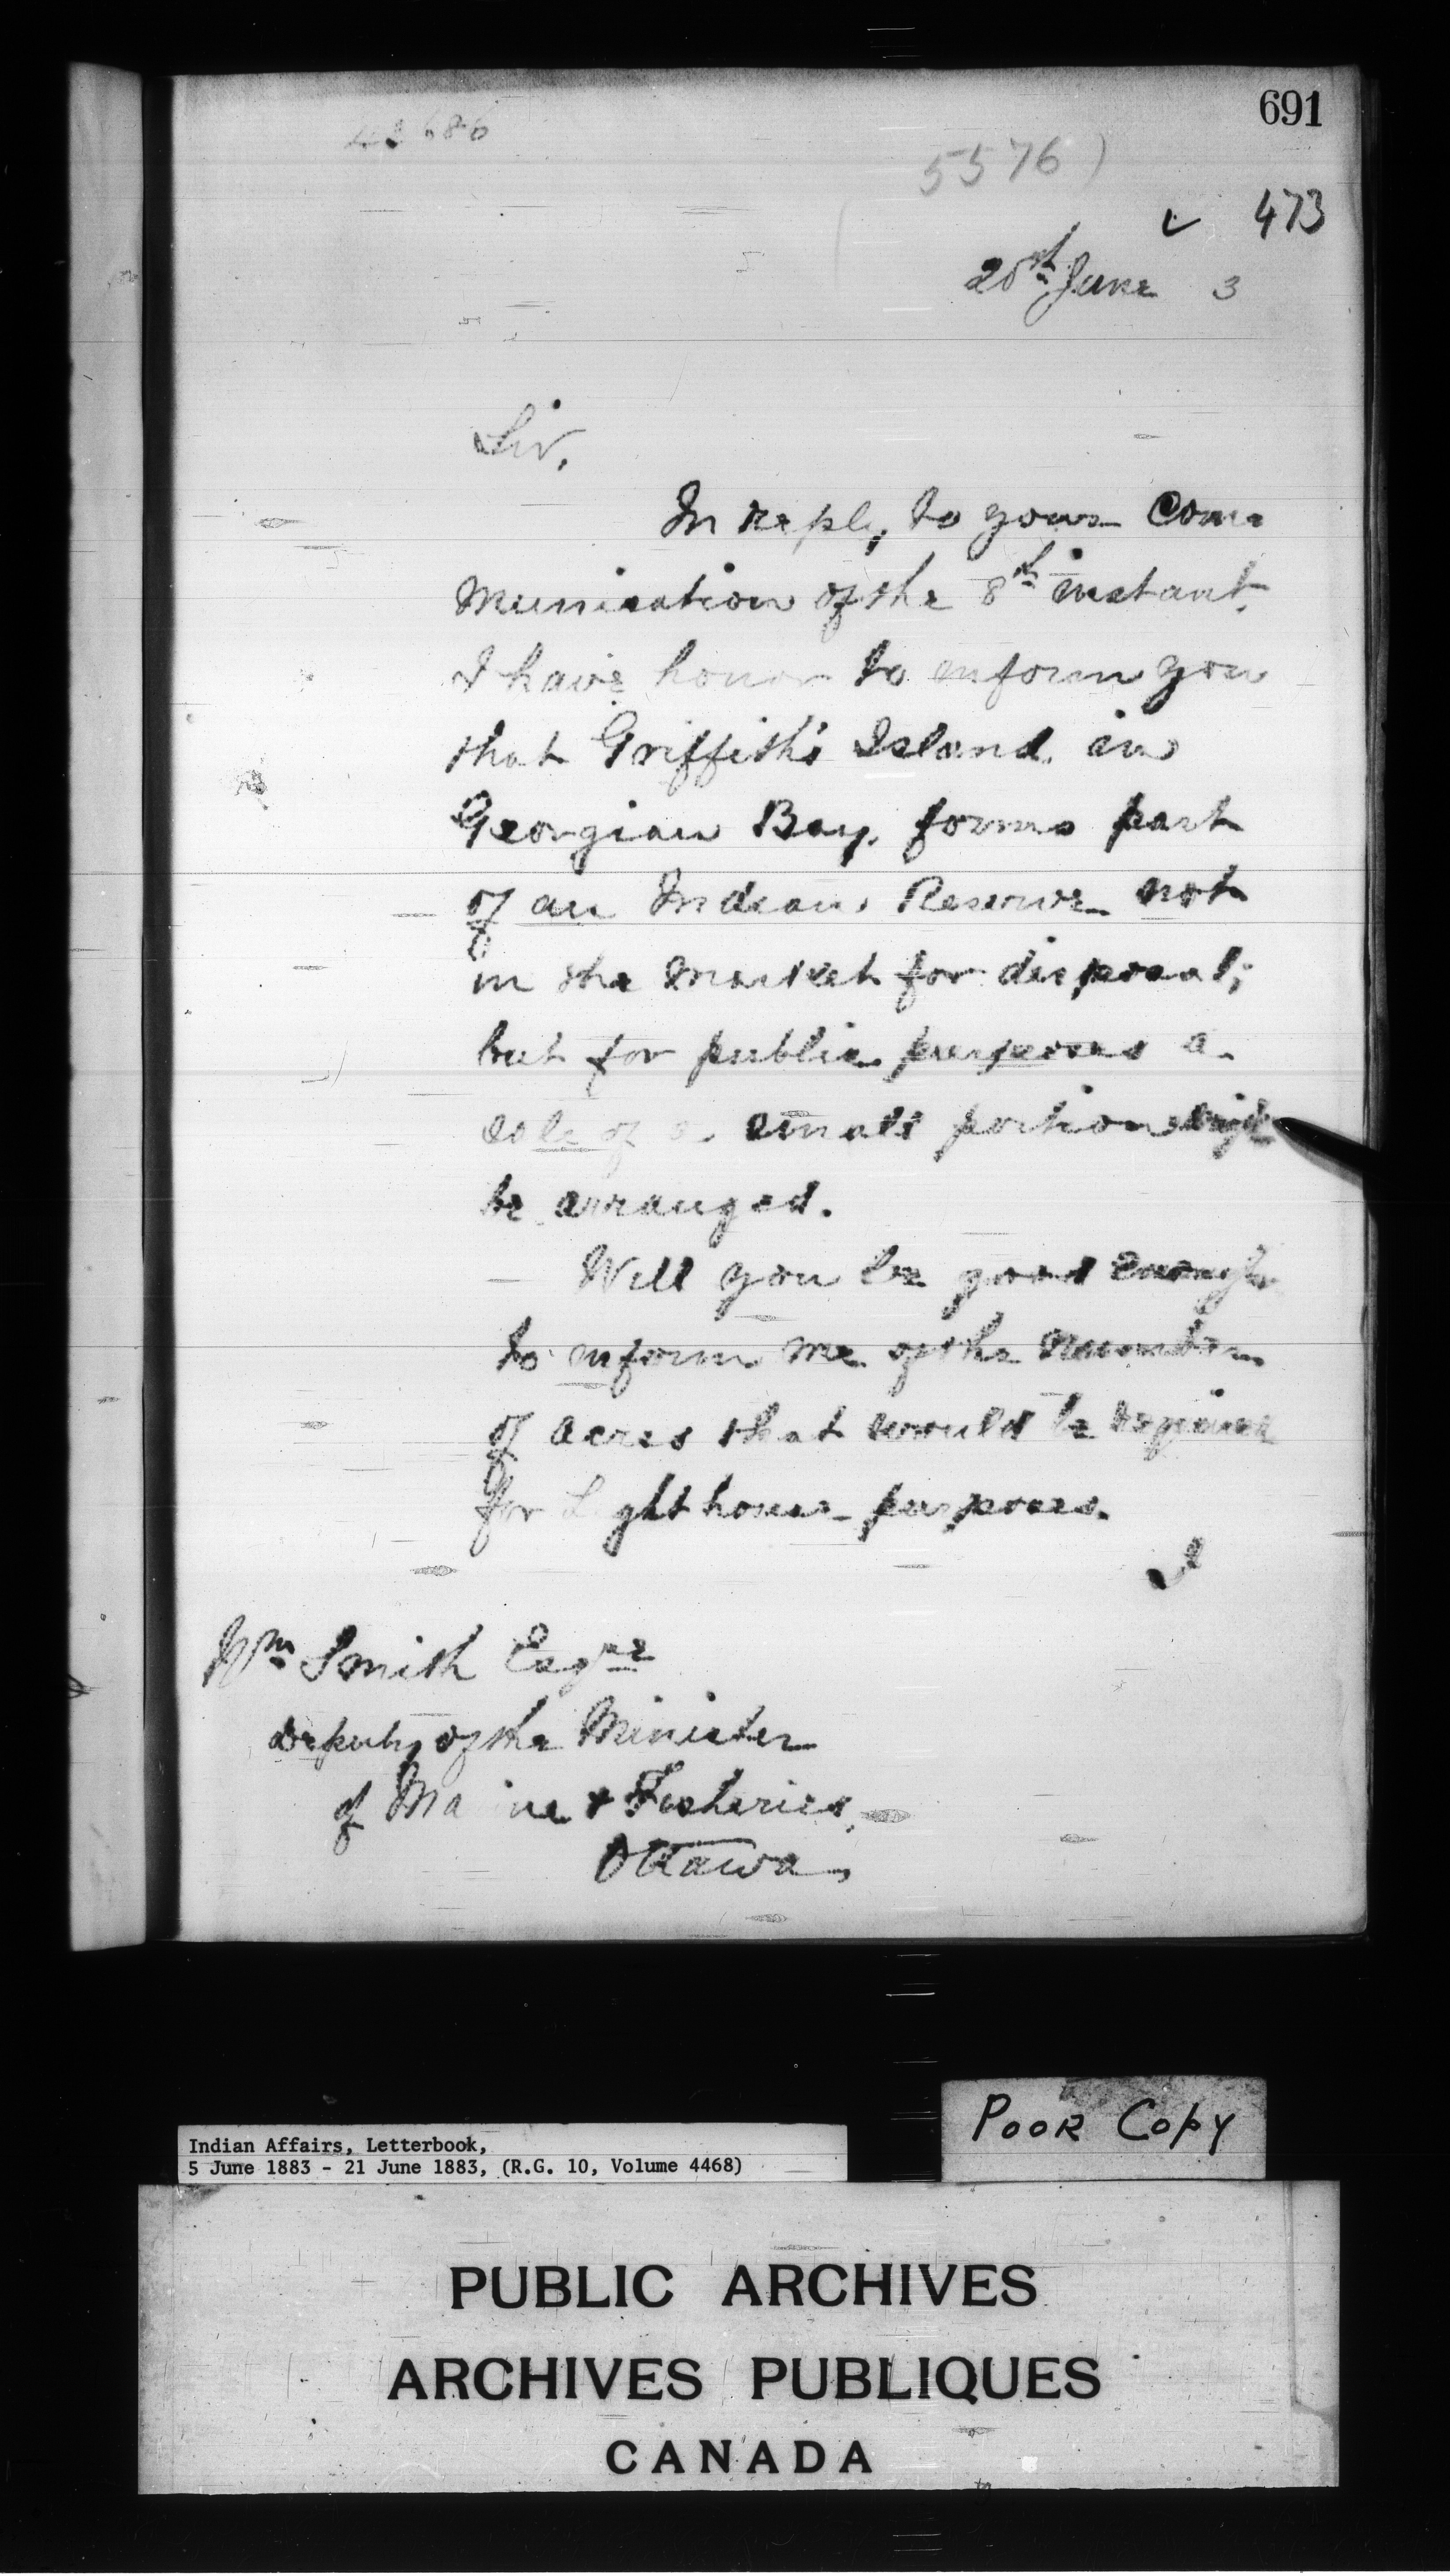 691
42686
5576)
473
20th June 3
Sir,
In reply, to your Com
munication of the 8th instant.
I have honor to inform you
that Griffith's Island, in
Georgian Bay, forms part
of an Indian Reserve not
in the market for disposal;
but for public purposes a
sale of a small portion might
be arranged.
Will you be good enough
to inform me of the number
of acres that would be required
for L ghthouse purposes.
I
Wm Smith Esqre
Deputy of the Minister
of Ma ine & Fisheries,
Ottawa,
POOR COPY
Indian Affairs, Letterbook,
5 June 1883 - 21 June 1883, (R.G. 10, Volume 4468)
PUBLIC ARCHIVES
ARCHIVES PUBLIQUES
CANADA